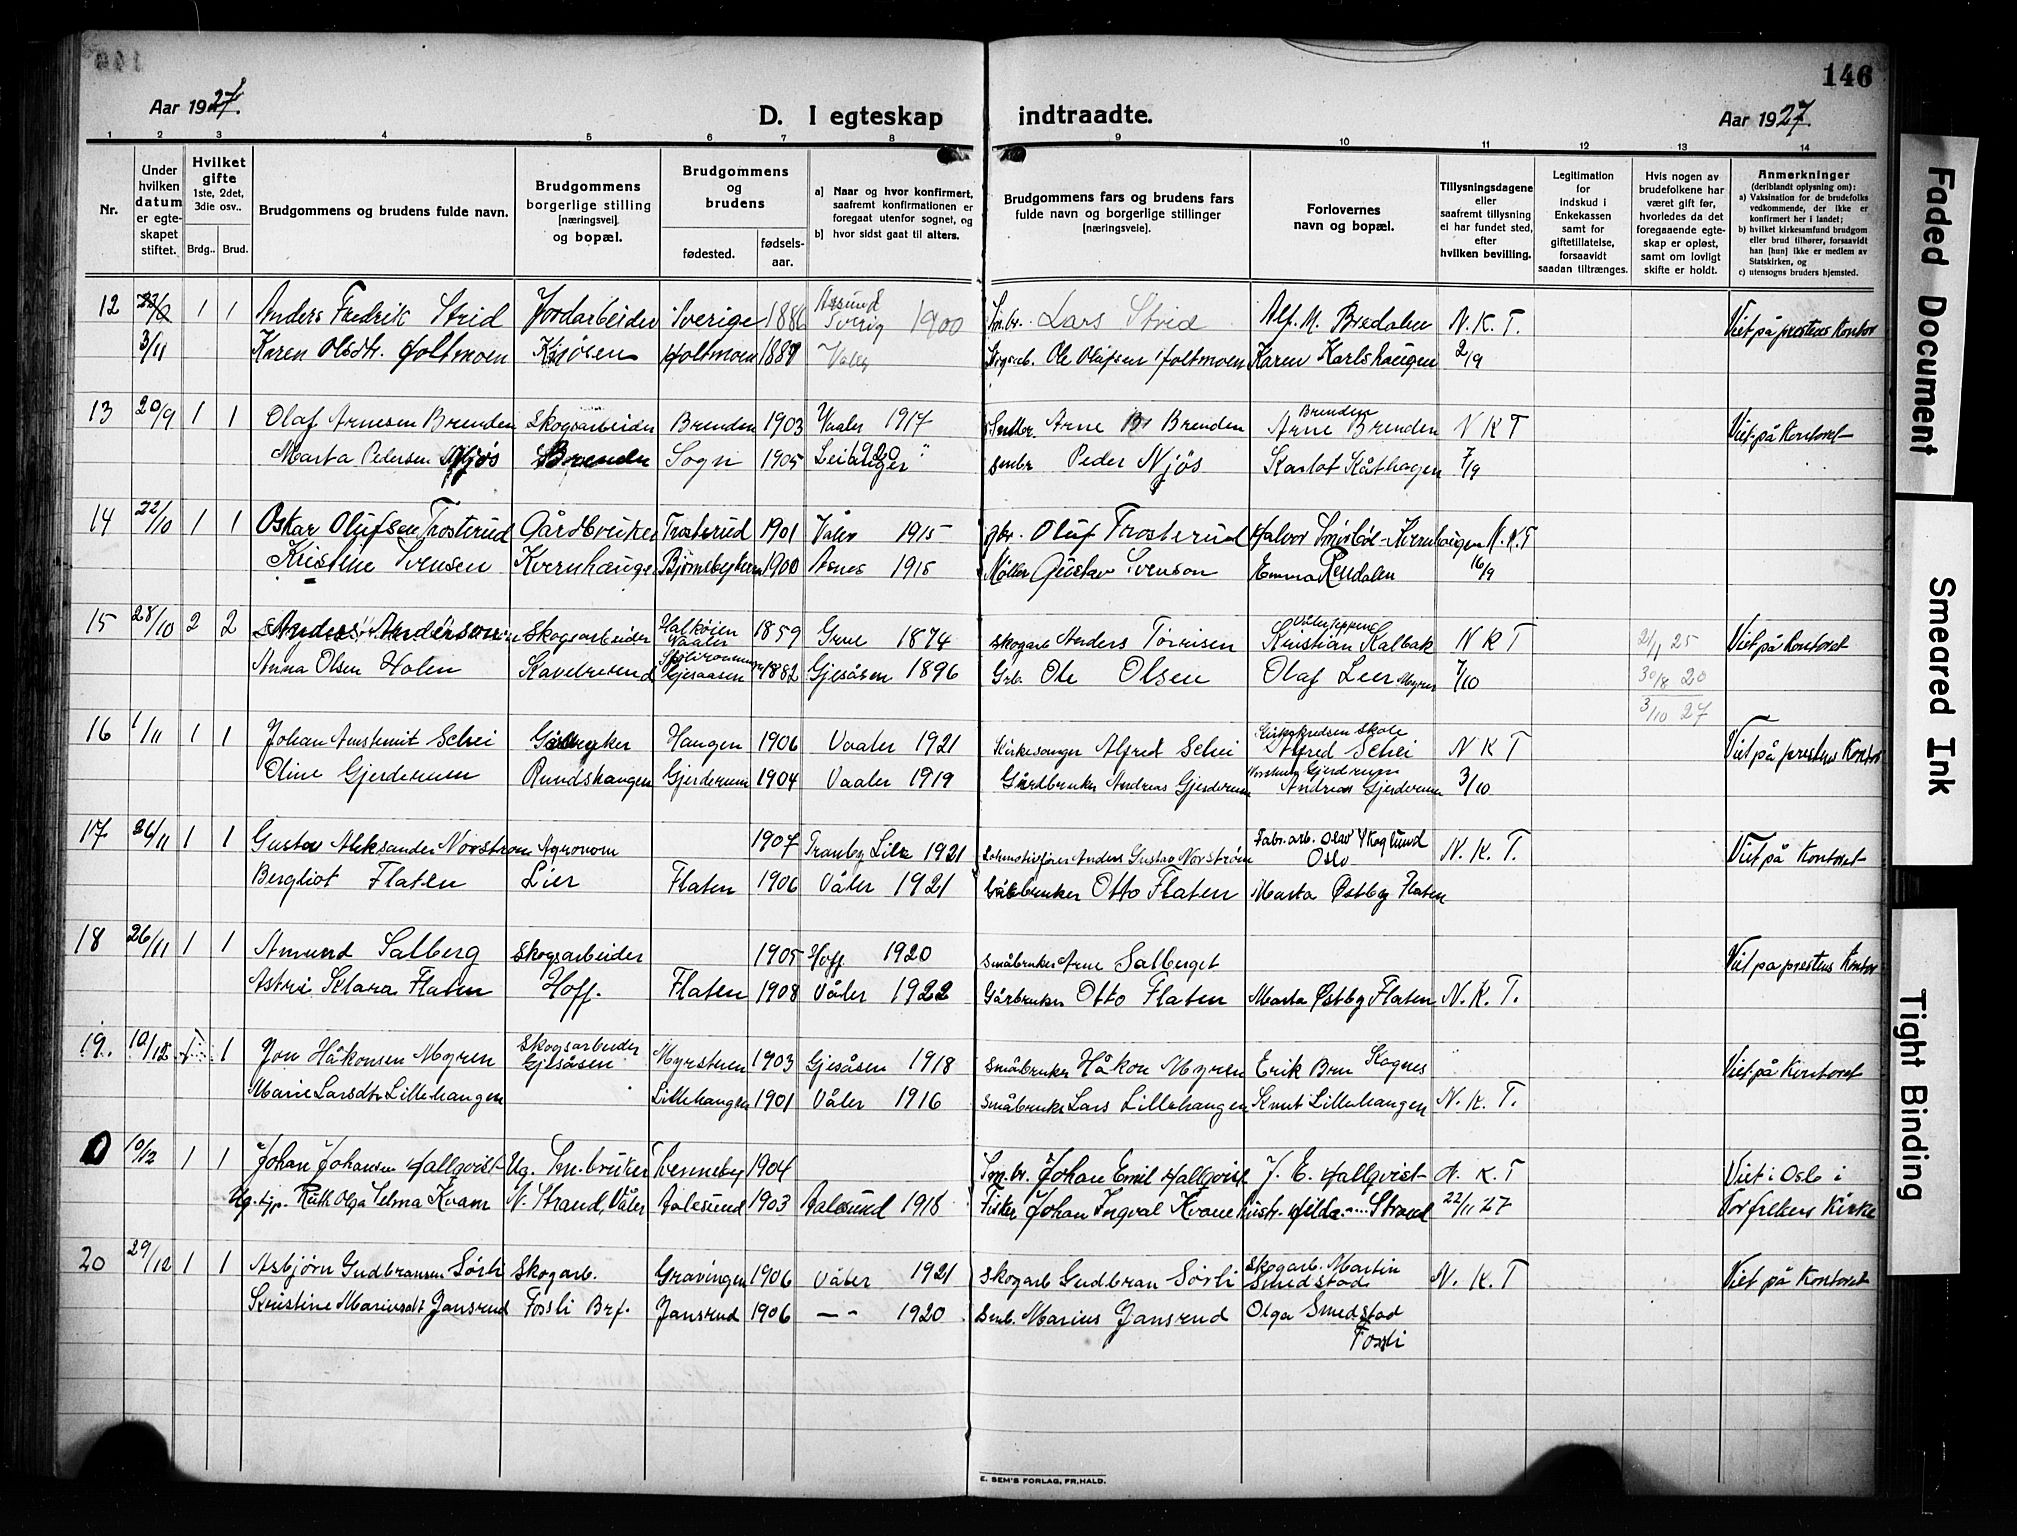 146
Aar 1927.
D. I egteskap indtraadte.
Aar 1927.
1 2 3 4 5 6 7 8 9 10 11 12 13 14
Nr.
Under hvilken datum er egteskapet stiftet.
Hvilket gifte 1ste, 2det, 3die osv..
Brdg.. Brud.
Brudgommens og brudens fulde navn.
Brudgommens borgerlige stilling [næringsvei]. og bopæl.
Brudgommens og brudens
fødested.
fødselsaar.
a) Naar og hvor konfirmert, saafremt konfirmationen er foregaat utenfor sognet, og
b) hvor sidst gaat til alters.
Brudgommens fars og brudens fars fulde navn og borgerlige stillinger [næringsveie].
Forlovernes navn og bopæl.
Tillysningsdagene eller saafremt tillysning ei har fundet sted, efter hvilken bevilling.
Legitimation for indskud i Enkekassen samt for giftetillatelse, forsaavidt saadan tiltrænges.
Hvis nogen av brudefolkene har været gift før, hvorledes da det foregaaende egteskap er opløst, samt om lovligt skifte er holdt.
Anmerkninger (deriblandt oplysning om):
a) Vaksination for de brudefolks vedkommende, der ikke er konfirmert her i landet;
b) hvilket kirkesamfund brudgom eller brud tilhører, forsaavidt han [hun] ikke er medlem av Statskirken, og
c) utensogns bruders hjemsted.
12 1 1 Anders Fredrik Strid Jordarbeider Sverige 1886 Sverig 1900 Sm.br. Lars Strid Alf. M. Bredalen N. K. T. Viet på prestens Kontor
3/11 Karen Olsdtr. Holtmoen Holtmoen Ole Olufsen Holtmoen Karen Karlshaugen 2/9
13 20/9 1 1 Olaf Arnesen Brenden Skogsarbeider Brenden 1903 Vaaler 1917 Arne Brenden Brenden Arne Brenden N K T Viet på Kontoret
Marta Pedersen Njøs Sogn 1905 1920 smbr Peder Njøs 7/9
14 22/10 1 1 Oskar Olufsen Trosterud Gårdbruker Trosterud 1901 Våler 1915 gbr. Oluf Trosterud Halvor N. K. T
Kristine Svensen Kvernhaugen 1900 Åsnes 1915 Møller Gustav Svenson Emma 16/9
15 28/10 2 2 Skogsarbeider Vaaler 1859 Grue 1874 skogarb Anders Kristian Kalbak N K T 2/1 25 Viet på Kontoret
Anna Olsen Holen Gjesaasen 1882 Gjesåsen 1896 Grb. Ole Olsen Olaf Lier Myren 7/10 30/8 20
3/10 27
16 1/11 1 1 Johan Schei Haugen 1906 Vaaler 1921 Kirkesanger Alfred Schei Kirkekredsen Skole Alfred Schei N K T Viet på prestens Kontor
Oline Gjerderum Rundshaugen Gjerderum 1904 Vaaler 1919 Gårdbruker Andreas Gjerderum Andreas Gjerderum 3/10
17 26/11 1 1 Gustav Aleksander Norstrøm Agronom 1907 Tranby Lier 1921 Lokmotivfører Anders Gustav Norstrøm Fabr.arb. Olav Skoglund Oslo N. K. T. Viet på Kontoret
Bergliot Flaten Lier Flaten 1906 Våler 1921 Gårbruker Otto Flaten Marta Østby Flaten
18 26/11 1 1 Amund Salberg Skogsarbeider 1905 Hoff 1920 Småbruker Arne Salberget Viet på prestens Kontor
Astri Klara Flaten Hoff. Flaten 1908 Våler 1922 Gårbruker Otto Flaten Marta Østby Flaten N. K. T.
19. 10/12 1 1 Jon Håkonsen Myren Skogsarbeider Gjesåsen 1903 Gjesåsen 1918 Småbruker Håkon Myren Erik Brun Viet på Kontoret
Marie Larsdtr Lillehaugen Lillehaugen 1901 Våler 1916 Småbruker Lars Lillehaugen Knut Lillehaugen N. K. T.
10/12 1 1 Johan Johansen Hallqvist Ug. Sm.bruker 1904 Sm.br. Johan Emil Hallqvist J. E. Hallqvist N. K. T Viet i Oslo i
Ug. tjp. Ruth Olga Selma Kvam N. Strand, Våler Aalesund 1903 Aalesund 1918 Fisker Johan Ingval Kvam Hustr. Hilda Strand 22/11 27 Vor frelsers Kirke
20 29/12 1 1 Asbjørn Gudbransen Sørli Skogarb. Gravingen 1906 Våler 1921 Skogarb Gudbran Sørli Skogarb. Martin Smedstad N. K. T Viet på Kontoret
Kristine Mariusdt Jansrud Fossli Brf. Jansrud 1906 — " — 1920 Smb. Marius Jansrud Olga Smedstad
Fossli
E. SEM'S FORLAG, FR.HALD.
Faded Document
Smeared Ink
Tight Binding